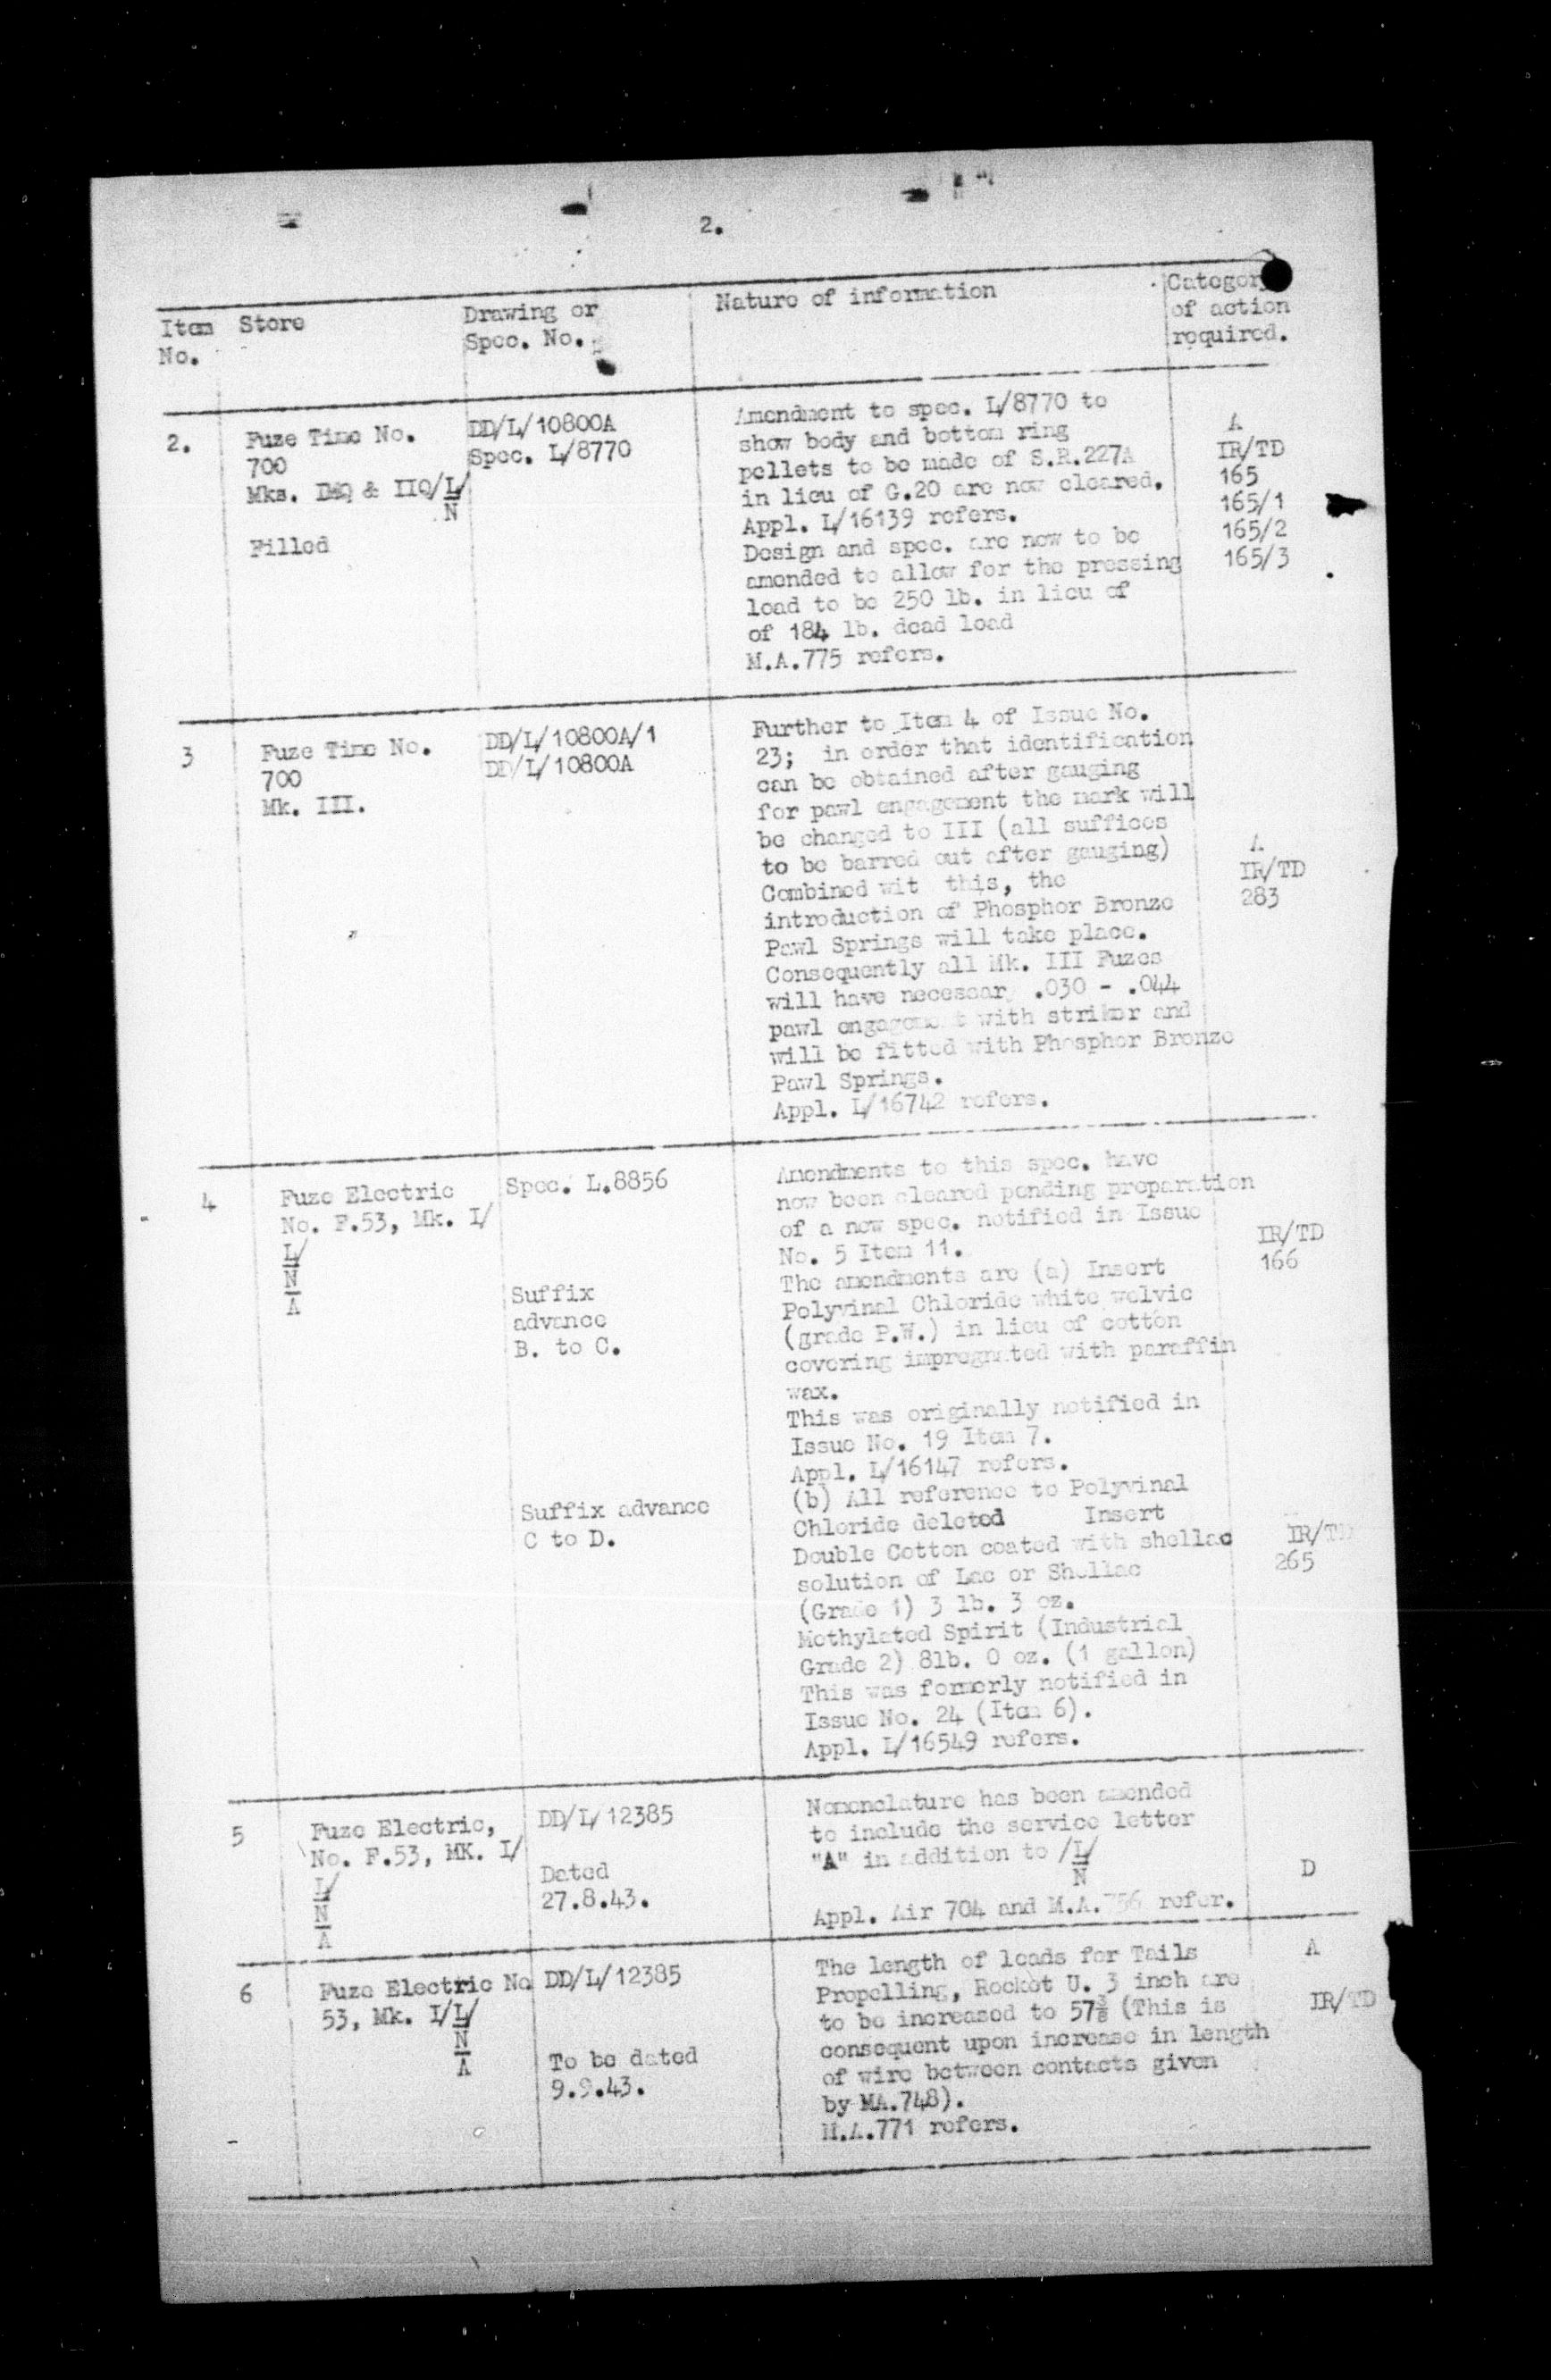 2.
Item No.
Store
Drawing or
Spec. No.
Nature of information
Category
of action
required.
2.
Fuze Time No.
700
Mks. IMQ & IIQ/L/
N
Filled
DD/L/10800A
Spec. L/8770
Amendment to spec. L/8770 to
show body and bottom ring
pellets to be made of S.R.227A
in lieu of G.20 are now cleared.
Appl. L/16139 refers.
Design and spec. are now to be
amended to allow for the pressing
load to be 250 lb. in lieu of
of 184 lb. dead load
M.A.775 refers.
A
IR/TD
165
165/1
165/2
165/3
3
Fuze Time No.
700
Mk. III.
DD/L/10800A/1
DD/L/10800A
Further to Item 4 of Issue No.
23; in order that identification
can be obtained after gauging
for pawl engagement the mark will
be changed to III (all suffices
to be barred out after gauging)
Combined wit this, the
introduction of Phosphor Bronze
Pawl Springs will take place.
Consequently all Mk. III Fuzes
will have necessary .030 - .044
pawl engagement with striker and
will be fitted with Phosphor Bronze
Pawl Springs.
Appl. L/16742 refers.
A
IR/TD
283
4
Fuze Electric
No. F.53, Mk. I/
L/
N
A
Spec. L.8856
Suffix
advance
B. to C.
Suffix advance
C to D.
Amendments to this spec. have
now been cleared pending preparation
of a new spec. notified in Issue
No. 5 Item 11.
The amendments are (a) Insert
Polyvinal Chloride white welvic
(grade P.W.) in lieu of cotton
covering impregnated with paraffin
wax.
This was originally notified in
Issue No. 19 Item 7.
Appl. L/16147 refers.
(b) All reference to Polyvinal
Chloride deleted Insert
Double Cotton coated with shellac
solution of Lac or Shellac
(Grade 1) 3 lb. 3 oz.
Methylated Spirit (Industrial
Grade 2) 8lb. 0 oz. (1 gallon)
This was formerly notified in
Issue No. 24 (Item 6).
Appl. L/16549 refers.
IR/TD
166
IR/TD
265
5
Fuze Electric,
No. F.53, MK. I/
L/
N
A
DD/L/12385
Dated
27.8.43.
Nomenclature has been amended
to include the service letter
"A" in addition to /L/
N
Appl. Air 704 and M.A. refer.
D
6
Fuze Electric No
53, Mk. I/L/
N
A
DD/L/12385
To be dated
9.9.43.
The length of leads for Tails
Propelling, Rocket U. 3 inch are
to be increased to 57⅜ (This is
consequent upon increase in length
of wire between contacts given
by MA.748).
M.A.771 refers.
A
IR/TD